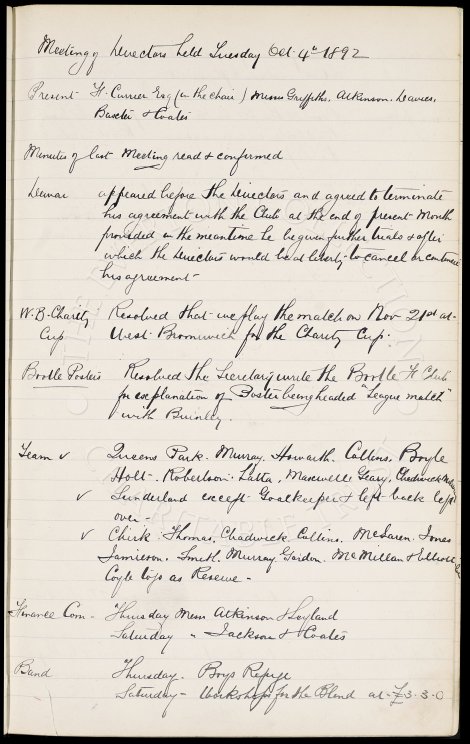 Meeting of Directors held Tuesday Oct 4th 1892
Present F. Currier Esq (in the chair) Messrs Griffiths, Atkinson, Davies,
Baxter & Coates
Minutes of last Meeting read & confirmed
Dewar appeared before the Directors and agreed to terminate
his agreement with the Club at the end of present Month
provided in the meantime he be given further trials & after
which the Directors would be at liberty to cancel or continue
his agreement -
W. B. Charity Resolved that we play the match on Nov 21st at
Cup West Bromwich for the Charity Cup.
Bootle Posters Resolved the Secretary write the Bootle Ft Club
for explanation of Poster being headed "League match"
with Burnley.
Team v Queens Park. Murray. Howarth. Collins. Boyle
Holt. Robertson. Latta, Maxwell Geary, Chadwick
v Sunderland except Goalkeeper & left back left
over -
v Chirk. Thomas, Chadwick Collins. McLaren. Jones
Jamieson. Smith. Murray Gordon. McMillan & Elliott
Coyle to go as Reserve -
Finance Com - Thursday Messrs Atkinson & Leyland
Saturday " Jackson & Coates
Band Thursday. Boys Refuge
Saturday - Workshops for the Blind at £3-3-0